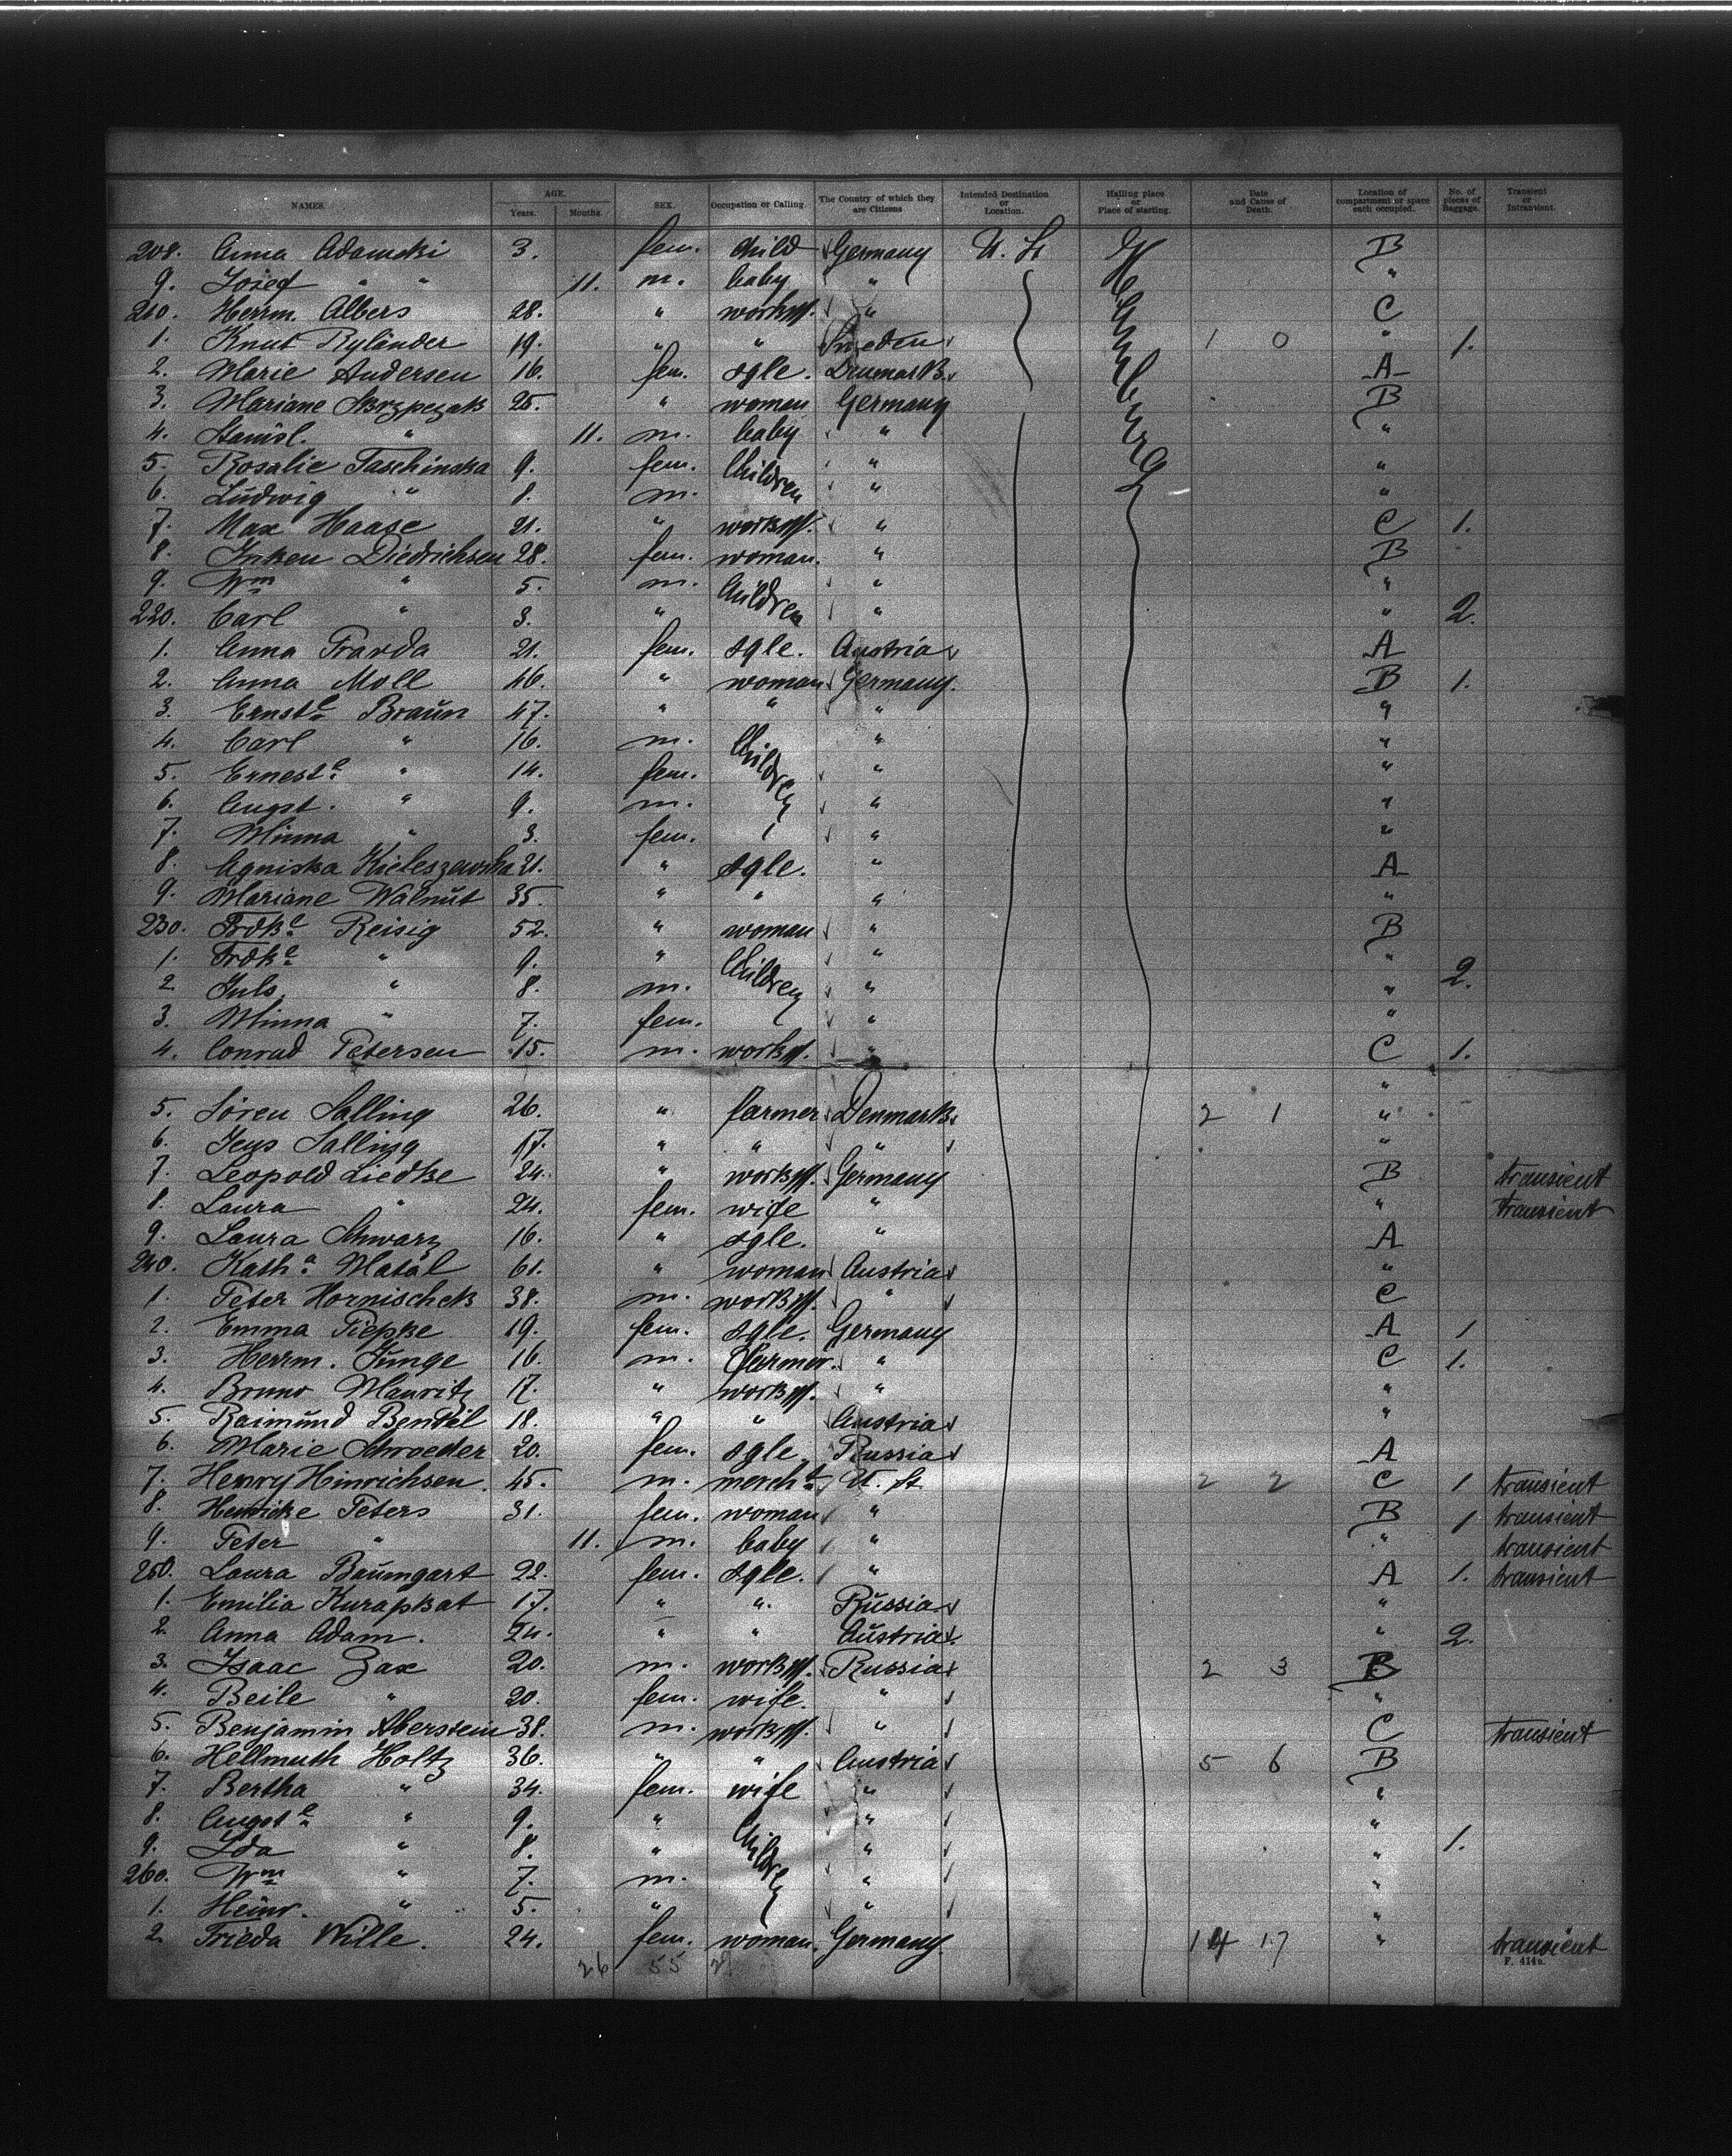 NAMES. AGE. Years. Months. SEX. Occupation or Calling. The Country of which they are Citizens Intended Destination or Location. Hailing place or Place of starting. Date and Cause of Death. Location of compartment or space each occupied. No. of pieces of Baggage. Transient or Intransient.
208. Anna Adamski 3. fem. child Germany U. St Hamburg B
9. Josef " " 11. m. baby " "
210. Herrm. Albers 28. " workm. " C
1. Knut Rylander 19. " " Sweden 1 0 " 1.
2. Marie Andersen 16. fem. sgle. Denmark A
3. Mariane Skrzypczak 25. " woman Germany B
4. Stanisl. " 11. m. baby " "
5. Rosalie Taschinska 9. fem. Children " "
6. Ludwig " 8. m. " "
7. Max Haase 21. " workm. " C 1.
8. Inken Diedrichsen 28. fem. woman. " B
9. Wm " 5. m. Children " "
220. Carl " 3. " " " 2.
1. Anna Pravda 21. fem. sgle. Austria A
2. Anna Moll 46. " woman Germany. B 1.
3. Ernste Braun 47. " " " "
4. Carl " 16. m. Children " "
5. Erneste " 14. fem. " "
6. Augst. " 9. m. " "
7. Minna " 3. fem. " "
8. Agniska Kieleszewska 21. " sgle. " A
9. Mariane Walnut 35. " " " "
230. Frdke Reisig 52. " woman " B
1. Frdke " 9. " Children " "
2 Juls. " 8. m. " " 2.
3. Minna " 7. fem. " "
4. Conrad Petersen 15. m. workm. " C 1.
"
5. Sören Salling 26. " farmer Denmark 2 1 "
6. Jens Salling 17. " " " "
7. Leopold Liedke 24. " workm. Germany B transient
8. Laura " 24. fem. wife " " transient
9. Laura Schwarz 16. " sgle. " A
240. Katha Matal 61. " woman Austria "
1. Peter Hornischek 38. m. workm. " C
2. Emma Piepke 19. fem. sgle. Germany A 1
3. Herrm. Junge 16. m. farmer. " C 1.
4. Bruno Mauritz 17. " workm. " "
5. Raimund Bendel 18. " " Austria "
6. Marie Schroeder 20. fem. sgle Russia A
7. Henry Hinrichsen. 45. m. mercht U. St. 2 2 C 1 transient
8. Henricke Peters 31. fem. woman " B 1 transient
9. Peter " 11. m. baby " " transient
250. Laura Baumgart 22. fem. sgle. " A 1. transient
1. Emilia Kurapkat 17. " " Russia "
2. Anna Adam. 24. " " Austria " 2.
3. Isaac Zax 20. m. workm. Russia 2 3 B
4. Beile " 20. fem. wife. " "
5. Benjamin Aberstein 38. m. workm. " C transient
6. Hellmuth Holtz 36. " " Austria 5 6 B
7. Bertha " 34. fem. wife " "
8. Augste " 9. " Children " "
9. Ida " 8. " " " 1.
260. Wm " 7. m. " "
1. Heinr. " 5. " " "
2 Frieda Wille. 24. fem. woman. Germany. 14 17 " transient
26 55 2
F. 414a.